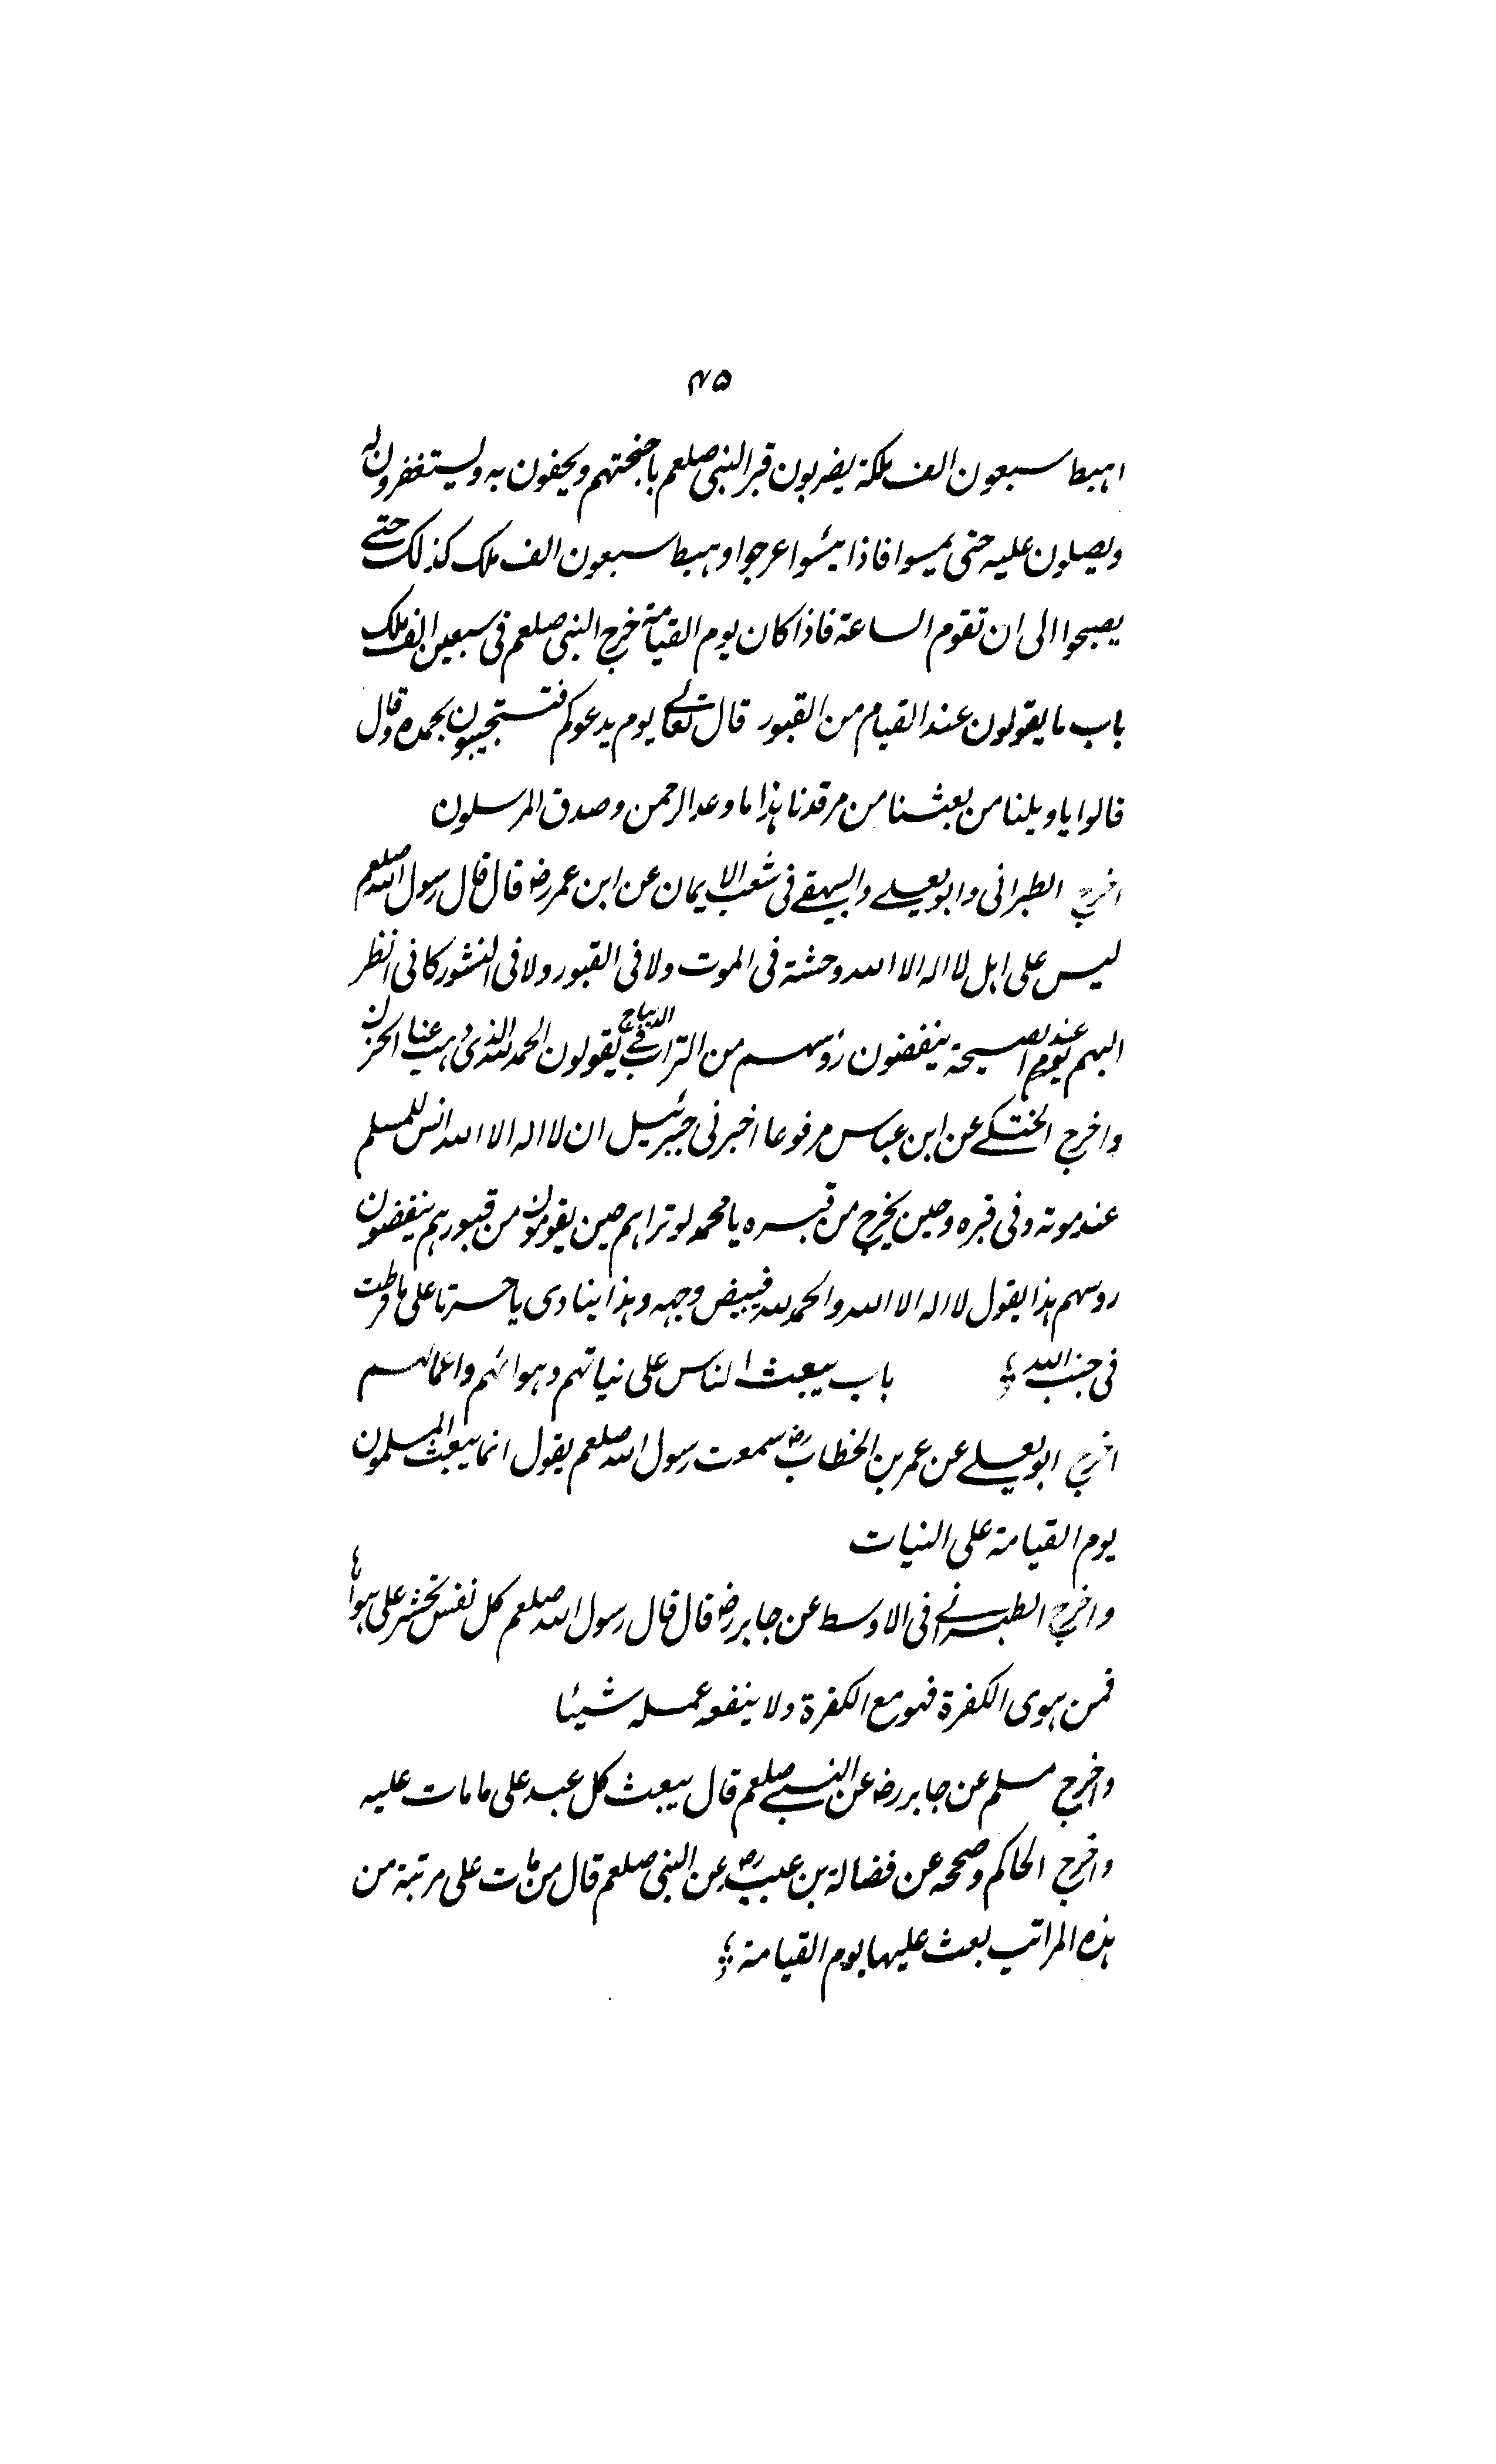 ۴۵
اہبط سبعون الف ملکۃ یضربون قبر النبی صلعم باجنحتہم ویحفون بہ ولیستغفرون لہ
ویصلون علیہ حتی یمیسوا فاذا میسئوا عرجوا وہبط سبعون الف ملک کذلک حتے
یصبحوا الی ان تقوم الساعۃ فاذا کان یوم القیامۃ خرج النبی صلعم فی سبعین الف ملک
باب ما یقولون عند القیام من القبور قال تعالے یوم یدعوکم فتستجیبون بحمدہ وقال
قالوا یا ویلنا من بعثنا من مرقدنا ہذا ما وعد الرحمن وصدق المرسلون
اخرج الطبرانی وابو یعلے والبیہقے فی شعب الایمان عن ابن عمر رض قال قال رسول اللہ صلعم
لیس علی اہل لا الہ الا اللہ وحشۃ فی الموت ولا فی القبور ولا فی النشور کانی انظر
الیہم عند یوم الصیحۃ ینفضون رؤسہم من التراب یقولون الحمد للہ الذی ذہب عنا الحزن
واخرج الختلے عن ابن عباس مرفوعا اخبرنی جبرئیل ان لا الہ الا اللہ انس للمسلم
عند موتہ وفی قبرہ وحین یخرج من قبرہ یا محمد لو تراہم حین یقومون من قبورہم ینفضون
روسہم ہذا یقول لا الہ الا اللہ والحمد للہ فیبیض وجہہ وہذا ینادی یا حسرتا علی ما فرطت
فی جنب اللہ ؛ باب یبعث الناس علی نیاتہم وہوائہم واعمالہم
اخرج ابو یعلے عن عمر بن الخطاب رض سمعت رسول اللہ صلعم یقول انما یبعث المسلمون
یوم القیامۃ علی النیات
واخرج الطبرانے فی الاوسط عن جابر رض قال قال رسول اللہ صلعم کل نفس تحشر علی ہواہا
فمن ہوی الکفرۃ فہو مع الکفرۃ ولا ینفعہ عملہ شیئا
واخرج مسلم عن جابر رض عن النبے صلعم قال یبعث کل عبد علی ما مات علیہ
واخرج الحاکم وصححہ عن فضالۃ بن عبید رض عن النبی صلعم قال من مات علی مرتبۃ من
ہذہ المراتب بعث علیہا یوم القیامۃ ؛